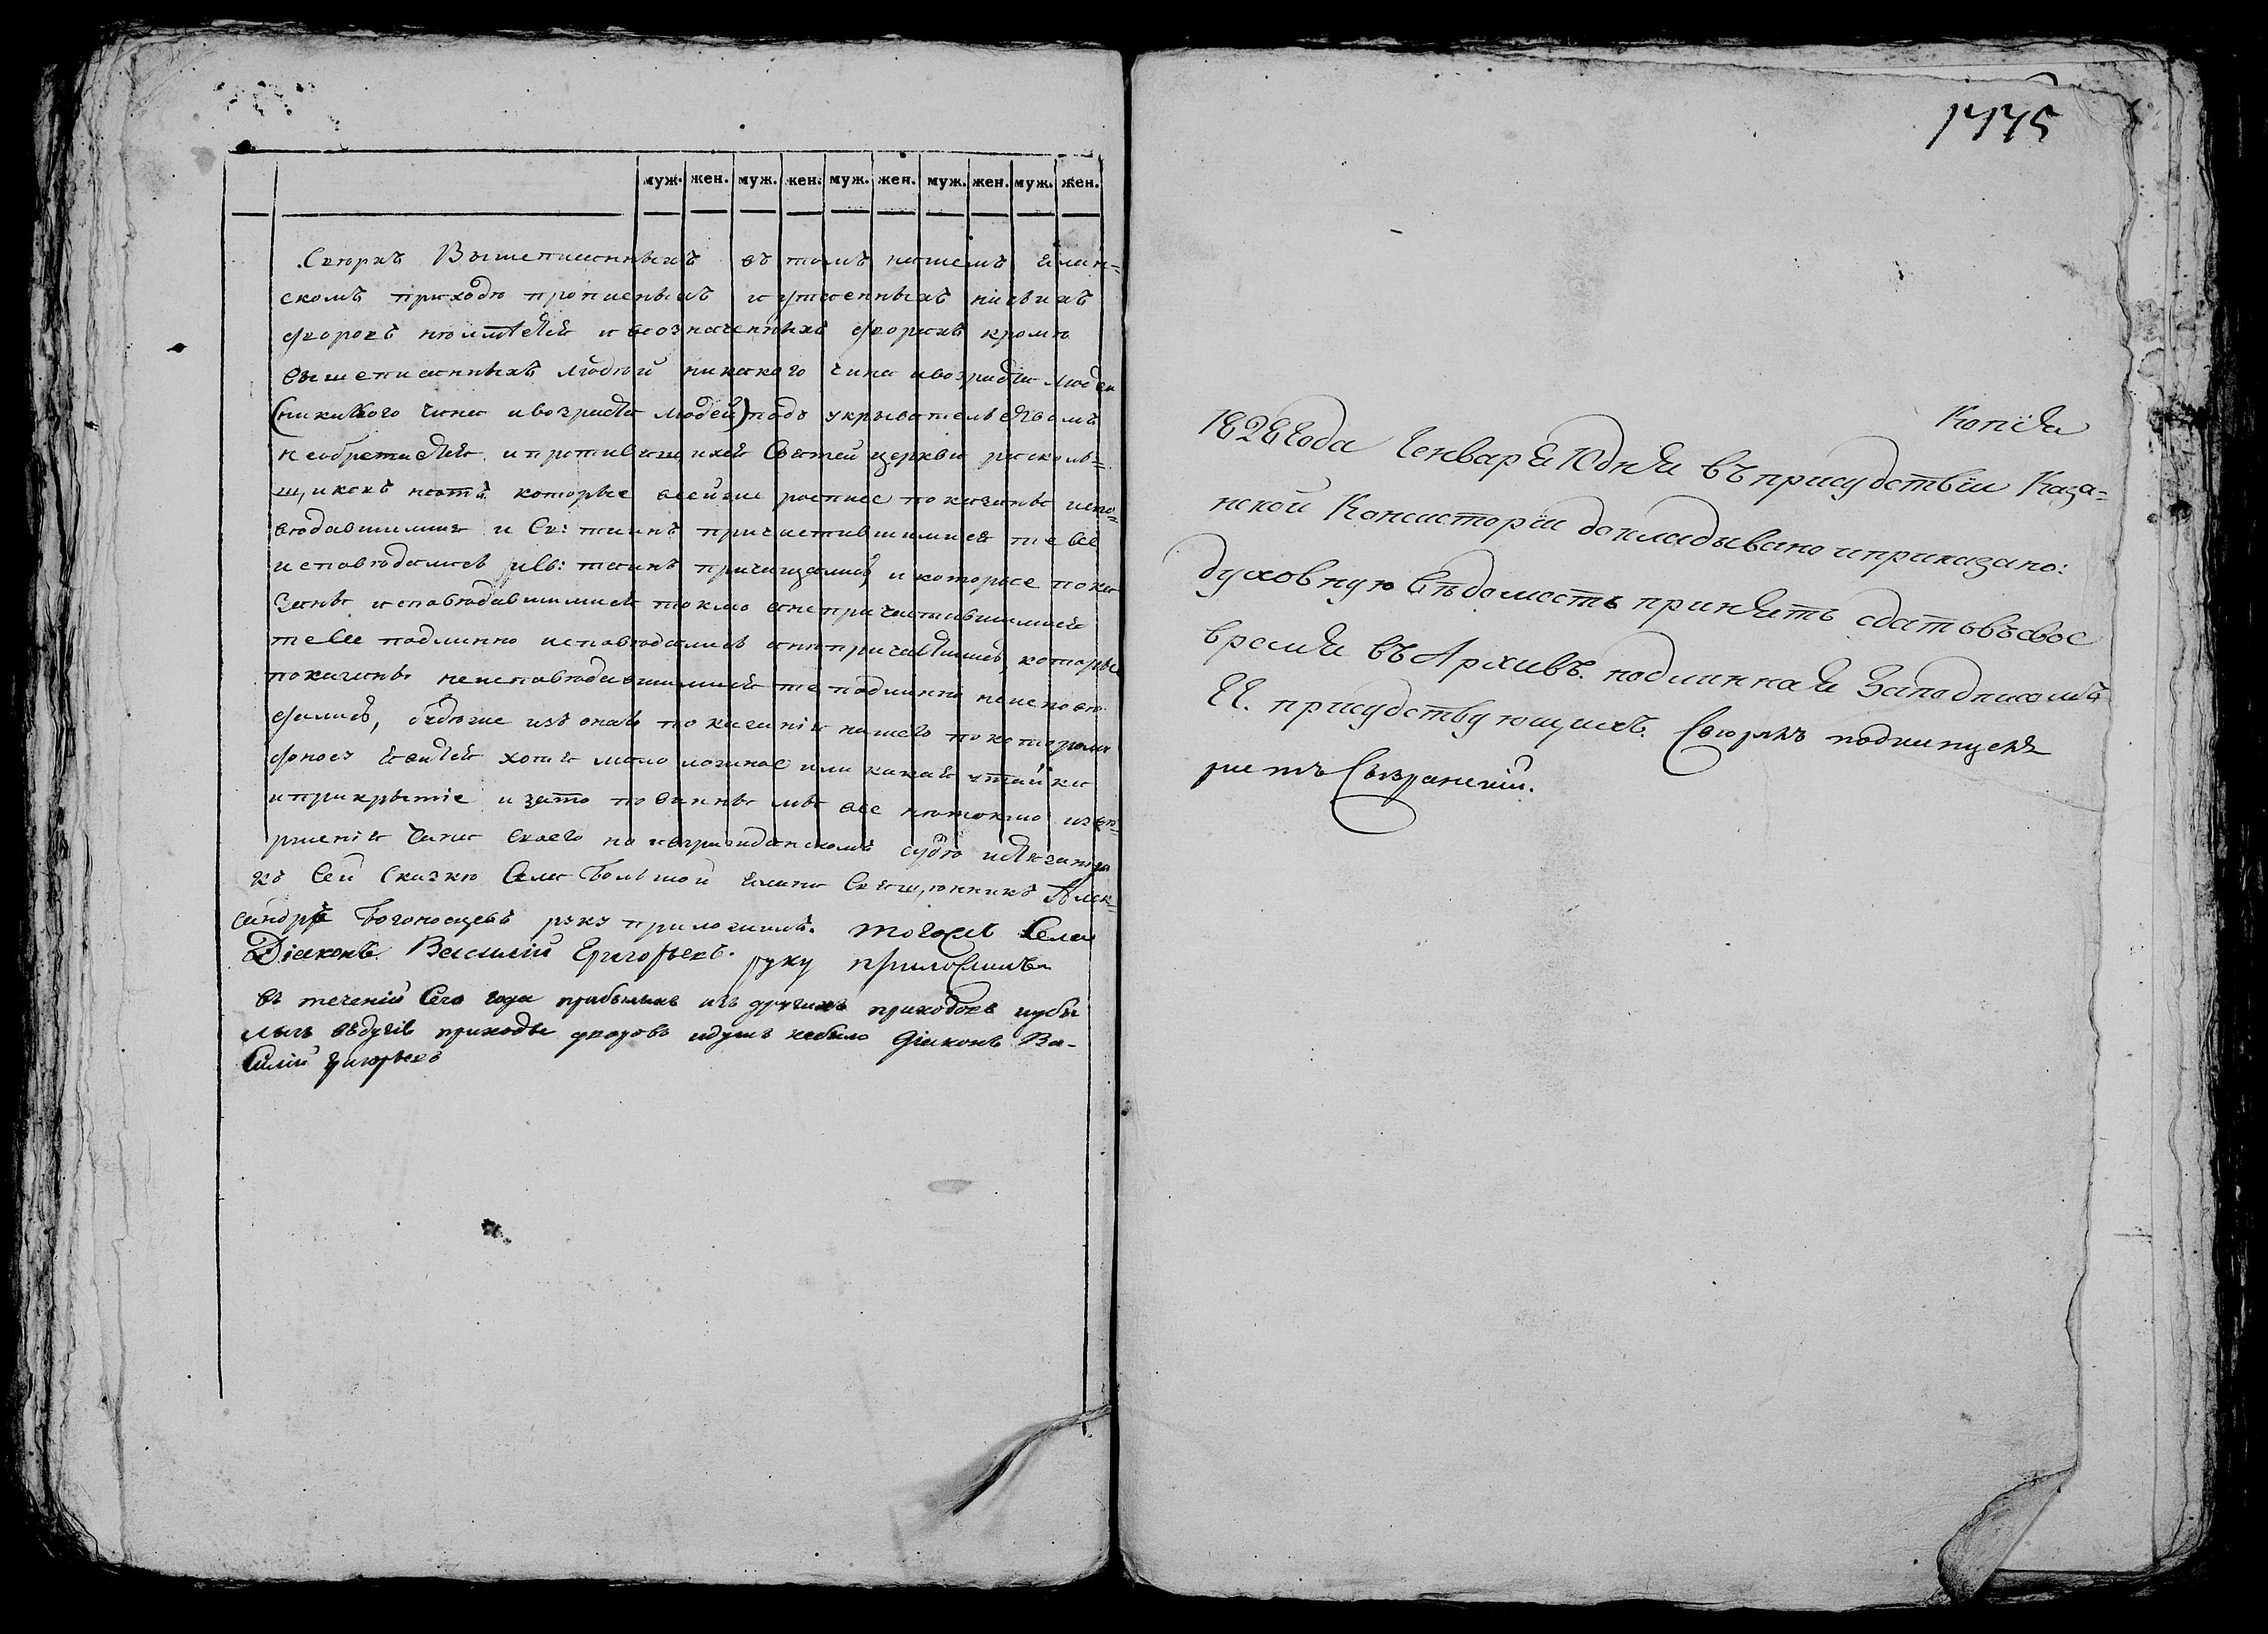 муж. жен. муж. жен. муж. жен. муж. жен. муж. жен.
Сверхъ Вышеписанныхъ въ томъ нашемъ Елан=
скомъ приходѣ прописныхъ и утаенныхъ никакихъ
дворовъ и возначенныхъ дворахъ кромѣ
вышеписанныхъ людѣй никакого чина ивозраста людей
(никакого чина ивозраста людей) подъ укрывательствомъ
необретается и противящихся Святей церкви расколь=
щиковъ нѣтъ которые всейже росписе показаны испо=
вѣдавшимися и Св: таинъ причастившимися те все
исповѣдались исв: таинъ причащались, и которые пока
Заны исповѣдавшимися токмо анепричастившимися
те все подлинно исповѣдались анепричастились, которые
показаны неисповѣдавшимися те подлинно неисповѣ
дались, будеже изъ онаго показанія нашего покоторому
доносу явится хотя мало ложное или какая утайка
иприкрытіе изато повинны мы все нетокмо извѣ
рженія чина своего но игражданскому суду истязанія
къ Сей Сказкѣ Села Большой Елани Священникъ Алек=
сандръ Богоносцевъ руку приложилъ. тогожъ Села
Діаконъ Василій Григорьевъ руку приложилъ
въ теченіи Сего года прибылыхъ изъ другихъ приходовъ иубы
лыхъ въдругіе приходы дворовъ идушъ небыло Діаконъ Ва-
силій Григорьевъ
1775
Копія
1828 года Генваря 10 дня въ присудствіи Каза=
нской Консисторіи докладывано иприказано:
духовную вѣдомость принять сдать въсвое
время въ Архивъ. подлинная Заподписомъ
ГГ. присудствующихъ. Сверхъ подканцеля
ристъ Сызранскій.